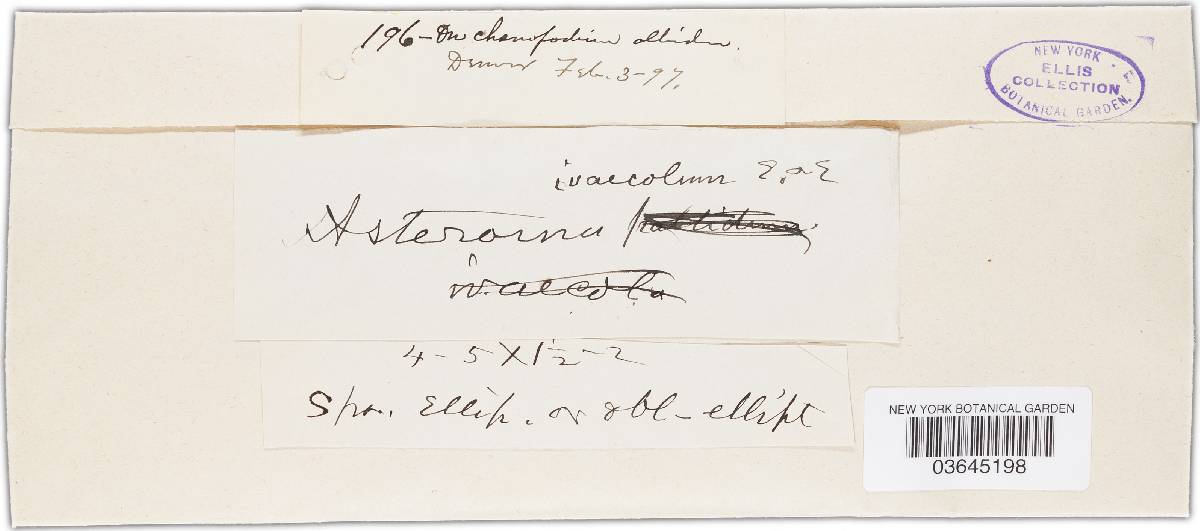 196 – On chenopodium album.
Denver Feb. 3 – 97.
NEW YORK
ELLIS
COLLECTION
BOTANICAL GARDEN.
ivaecolum E. & E
Asteroma pallidum
ivaecola
4 – 5 X 1½ – 2
Spor. Ellip. or obl – ellipt
NEW YORK BOTANICAL GARDEN
03645198